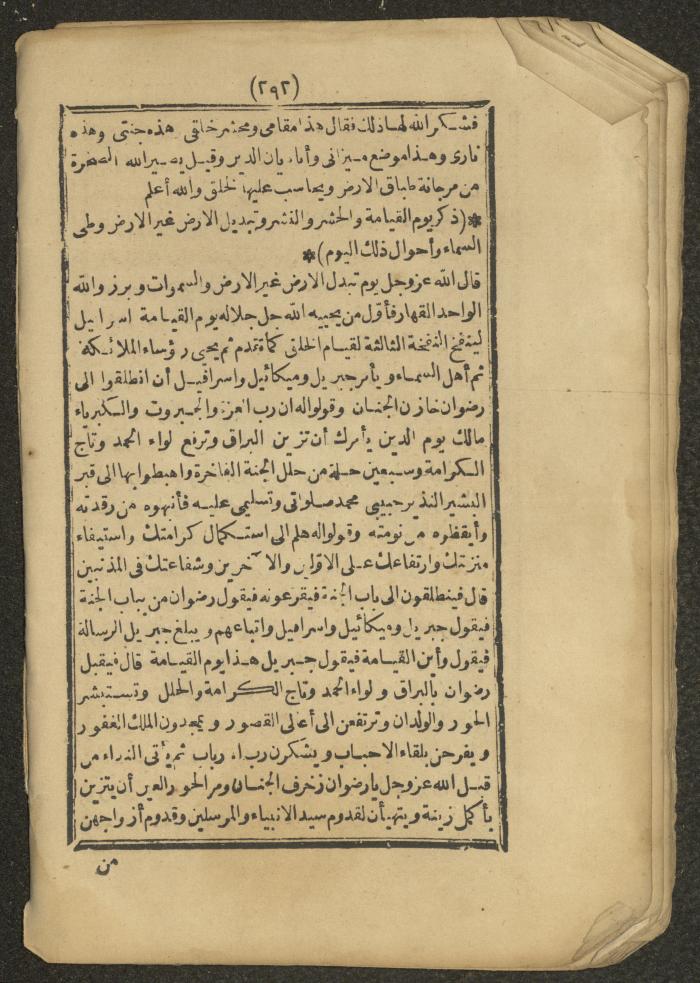 (٢٩٢)
فشكر الله لها ذلك فقال هذا مقامى ومحشر خلقى هذه جنتى وهذه
نارى وهذا موضع ميزانى وأنا ديان الدين وقيل يصير الله الصخرة
من مرجانة طباق الارض ويحاسب عليها الخلق والله أعلم
*(ذكر يوم القيامة والحشر والنشر وتبديل الارض غير الارض وطى
السماء وأحوال ذلك اليوم)*
قال الله عز وجل يوم تبدل الارض غير الارض والسموات وبرزوا لله
الواحد القهار فأول من يحييه الله جل جلاله يوم القيامة اسرافيل
لينفخ النفخة الثالثة لقيام الخلق كما تقدم ثم يحيى رؤساء الملائكة
ثم أهل السماء ويأمر جبريل وميكائيل واسرافيل أن انطلقوا الى
رضوان خازن الجنان وقولوا له ان رب العزة والجبروت والكبرياء
مالك يوم الدين يأمرك أن تزين البراق وترفع لواء الحمد وتاج
الكرامة وسبعين حلة من حلل الجنة الفاخرة واهبطوا بها الى قبر
البشير النذير حبيبى محمد صلواتى وتسليمى عليه فأنبهوه من رقدته
وأيقظوه من نومته وقولوا له هلم الى استكمال كرامتك واستيفاء
منزلتك وارتفاعك على الاولين والآخرين وشفاعتك فى المذنبين
قال فينطلقون الى باب الجنة فيقرعونه فيقول رضوان من بباب الجنة
فيقول جبريل وميكائيل واسرافيل واتباعهم ويبلغ جبريل الرسالة
فيقول وأين القيامة فيقول جبريل هذا يوم القيامة قال فيقبل
رضوان بالبراق ولواء الحمد وتاج الكرامة والحلل وتستبشر
الحور والولدان وترتفعن الى أعالى القصور ويمجدون الملك الغفور
ويفرحن بلقاء الاحباب ويشكرن رب الارباب ثم يأتى النداء من
قبل الله عز وجل يا رضوان زخرف الجنان ومر الحور العين أن يتزين
بأكمل زينة ويتهيأن لقدوم سيد الانبياء والمرسلين وقدوم أزواجهن
من